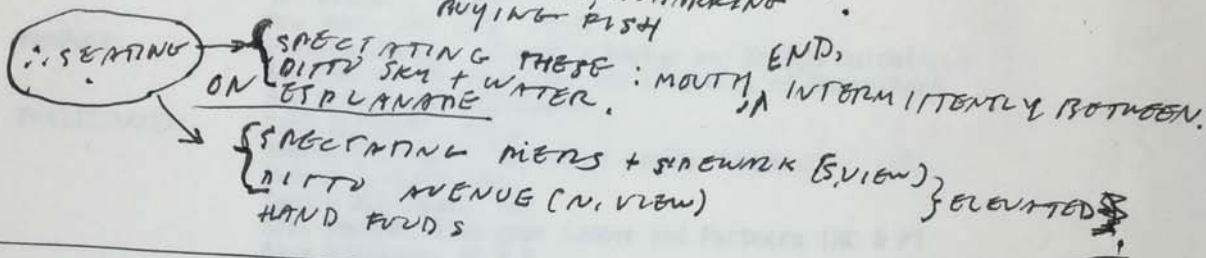 BUYING FISH
∴ SEATING → SPECTATING THESE : MOUTH, END,
DITTO SKY + WATER. INTERMITTENTLY BETWEEN.
ON ESPLANADE
SPECTATING PIERS + SIDEWALK (S. VIEW)
DITTO AVENUE (N. VIEW) } ELEVATED
HAND FOODS